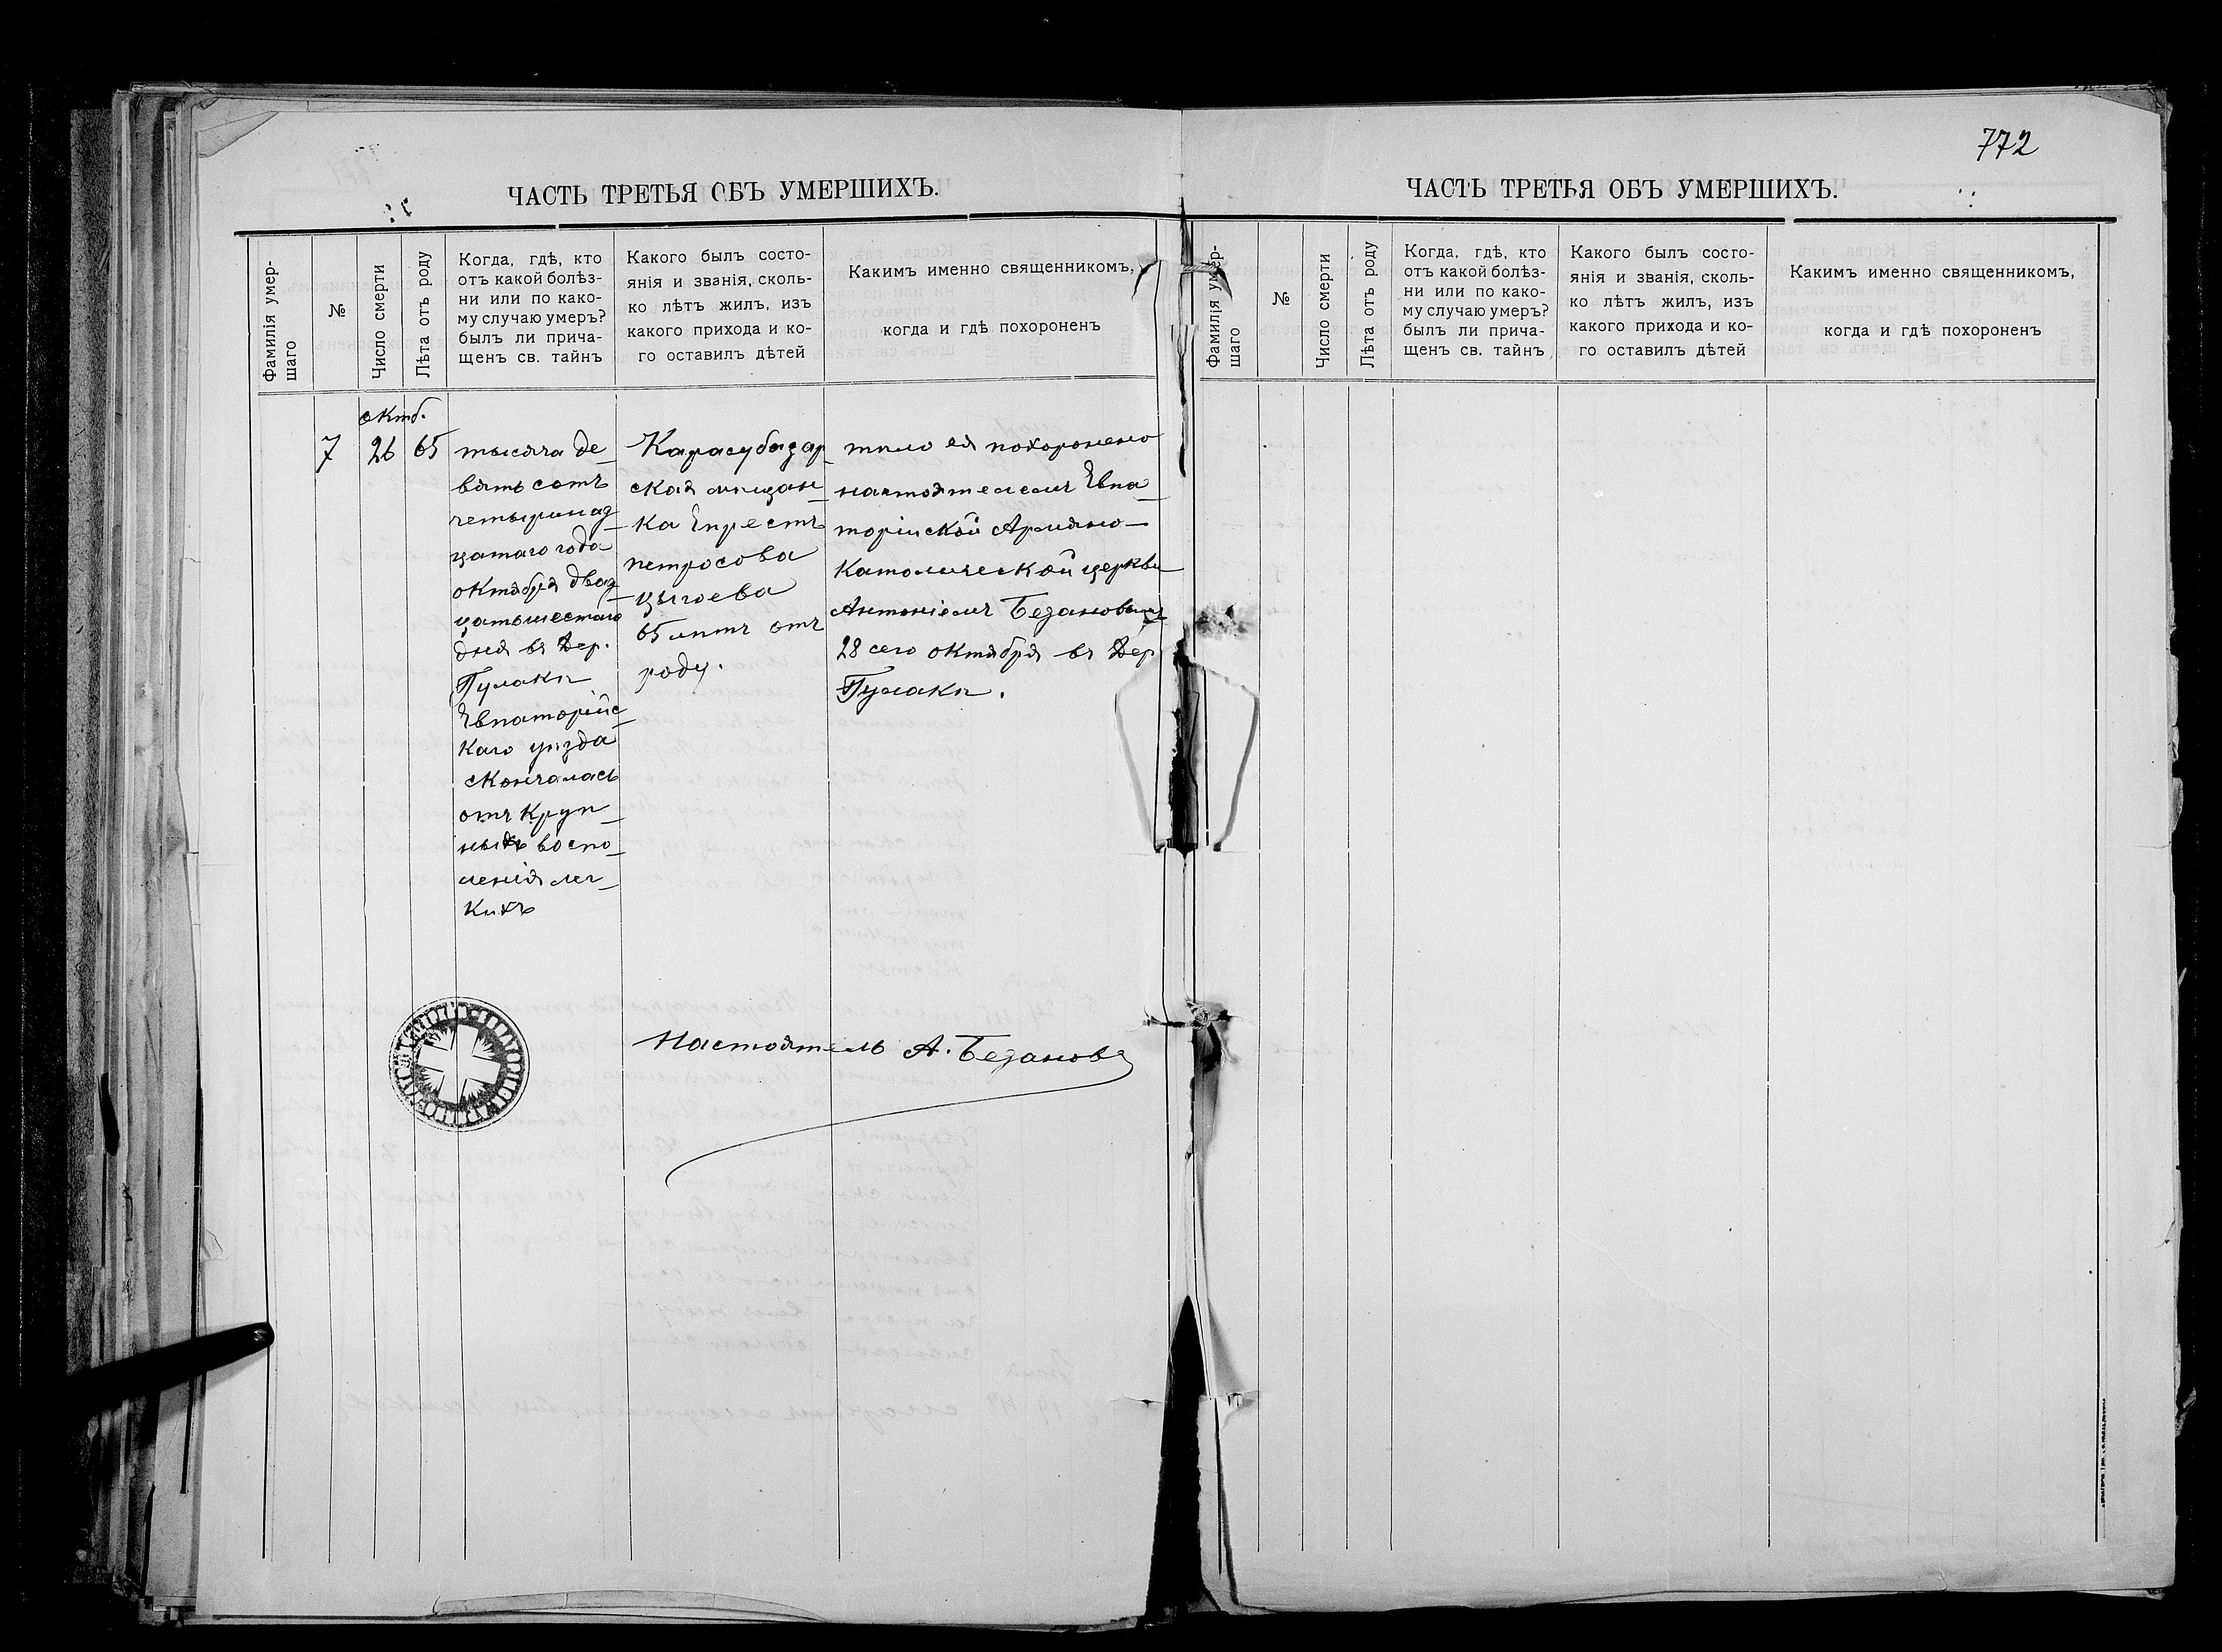 772
ЧАСТЬ ТРЕТЬЯ ОБЪ УМЕРШИХЪ.
Фамилія умер-
шаго
№
Число смерти
Лѣта отъ роду
Когда, гдѣ, кто
отъ какой болѣз-
ни или по како-
му случаю умеръ?
былъ ли прича-
щенъ св. тайнъ
Какого былъ состо-
янія и званія, сколь-
ко лѣтъ жилъ, изъ
какого прихода и ко-
го оставилъ дѣтей
Какимъ именно священникомъ,
когда и гдѣ похороненъ
октб.
7
26
65
тысяча де-
вятьсотъ
четырнад-
цатаго года
октября двад-
цатьшестаго
дня въ дер.
Пулакъ
Евпаторійс-
каго уѣзда
скончалась
отъ круп-
ныхъ воспо-
ленія лег-
кихъ
Карасубазар-
ская мѣщан-
ка
петросова
65 лѣтъ отъ
роду.
тѣло ея похоронено
настоятелемъ Евпа-
торійской Армяно-
Католической церкви
Антоніемъ Безановымъ
28 сего октября въ дер
Пулакъ.
Настоятель А. Безановъ
ЧАСТЬ ТРЕТЬЯ ОБЪ УМЕРШИХЪ.
Фамилія умер-
шаго
№
Число смерти
Лѣта отъ роду
Когда, гдѣ, кто
отъ какой болѣз-
ни или по како-
му случаю умеръ?
былъ ли прича-
щенъ св. тайнъ
Какого былъ состо-
янія и званія, сколь-
ко лѣтъ жилъ, изъ
какого прихода и ко-
го оставилъ дѣтей
Какимъ именно священникомъ,
когда и гдѣ похороненъ